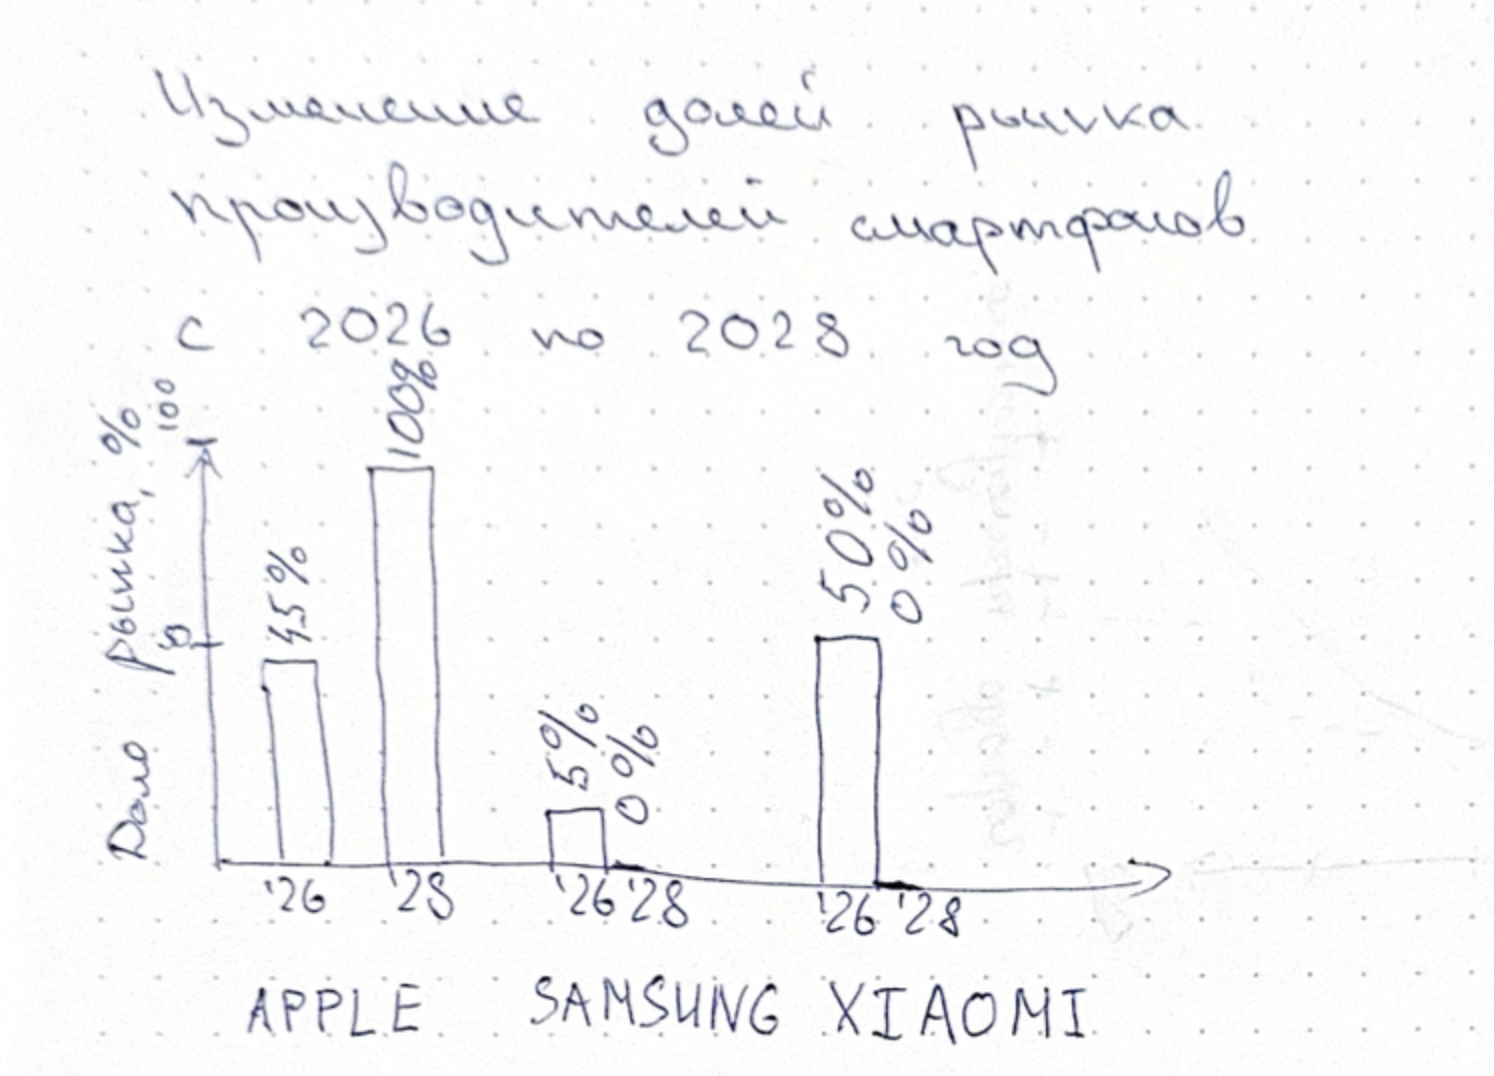 Изменение долей рынка
производителей смартфонов
с 2026 по 2028 год
Доля рынка, %
100
50
45%
100%
5%
0%
50%
0%
'26 '28 '26 '28 '26 '28
APPLE SAMSUNG XIAOMI